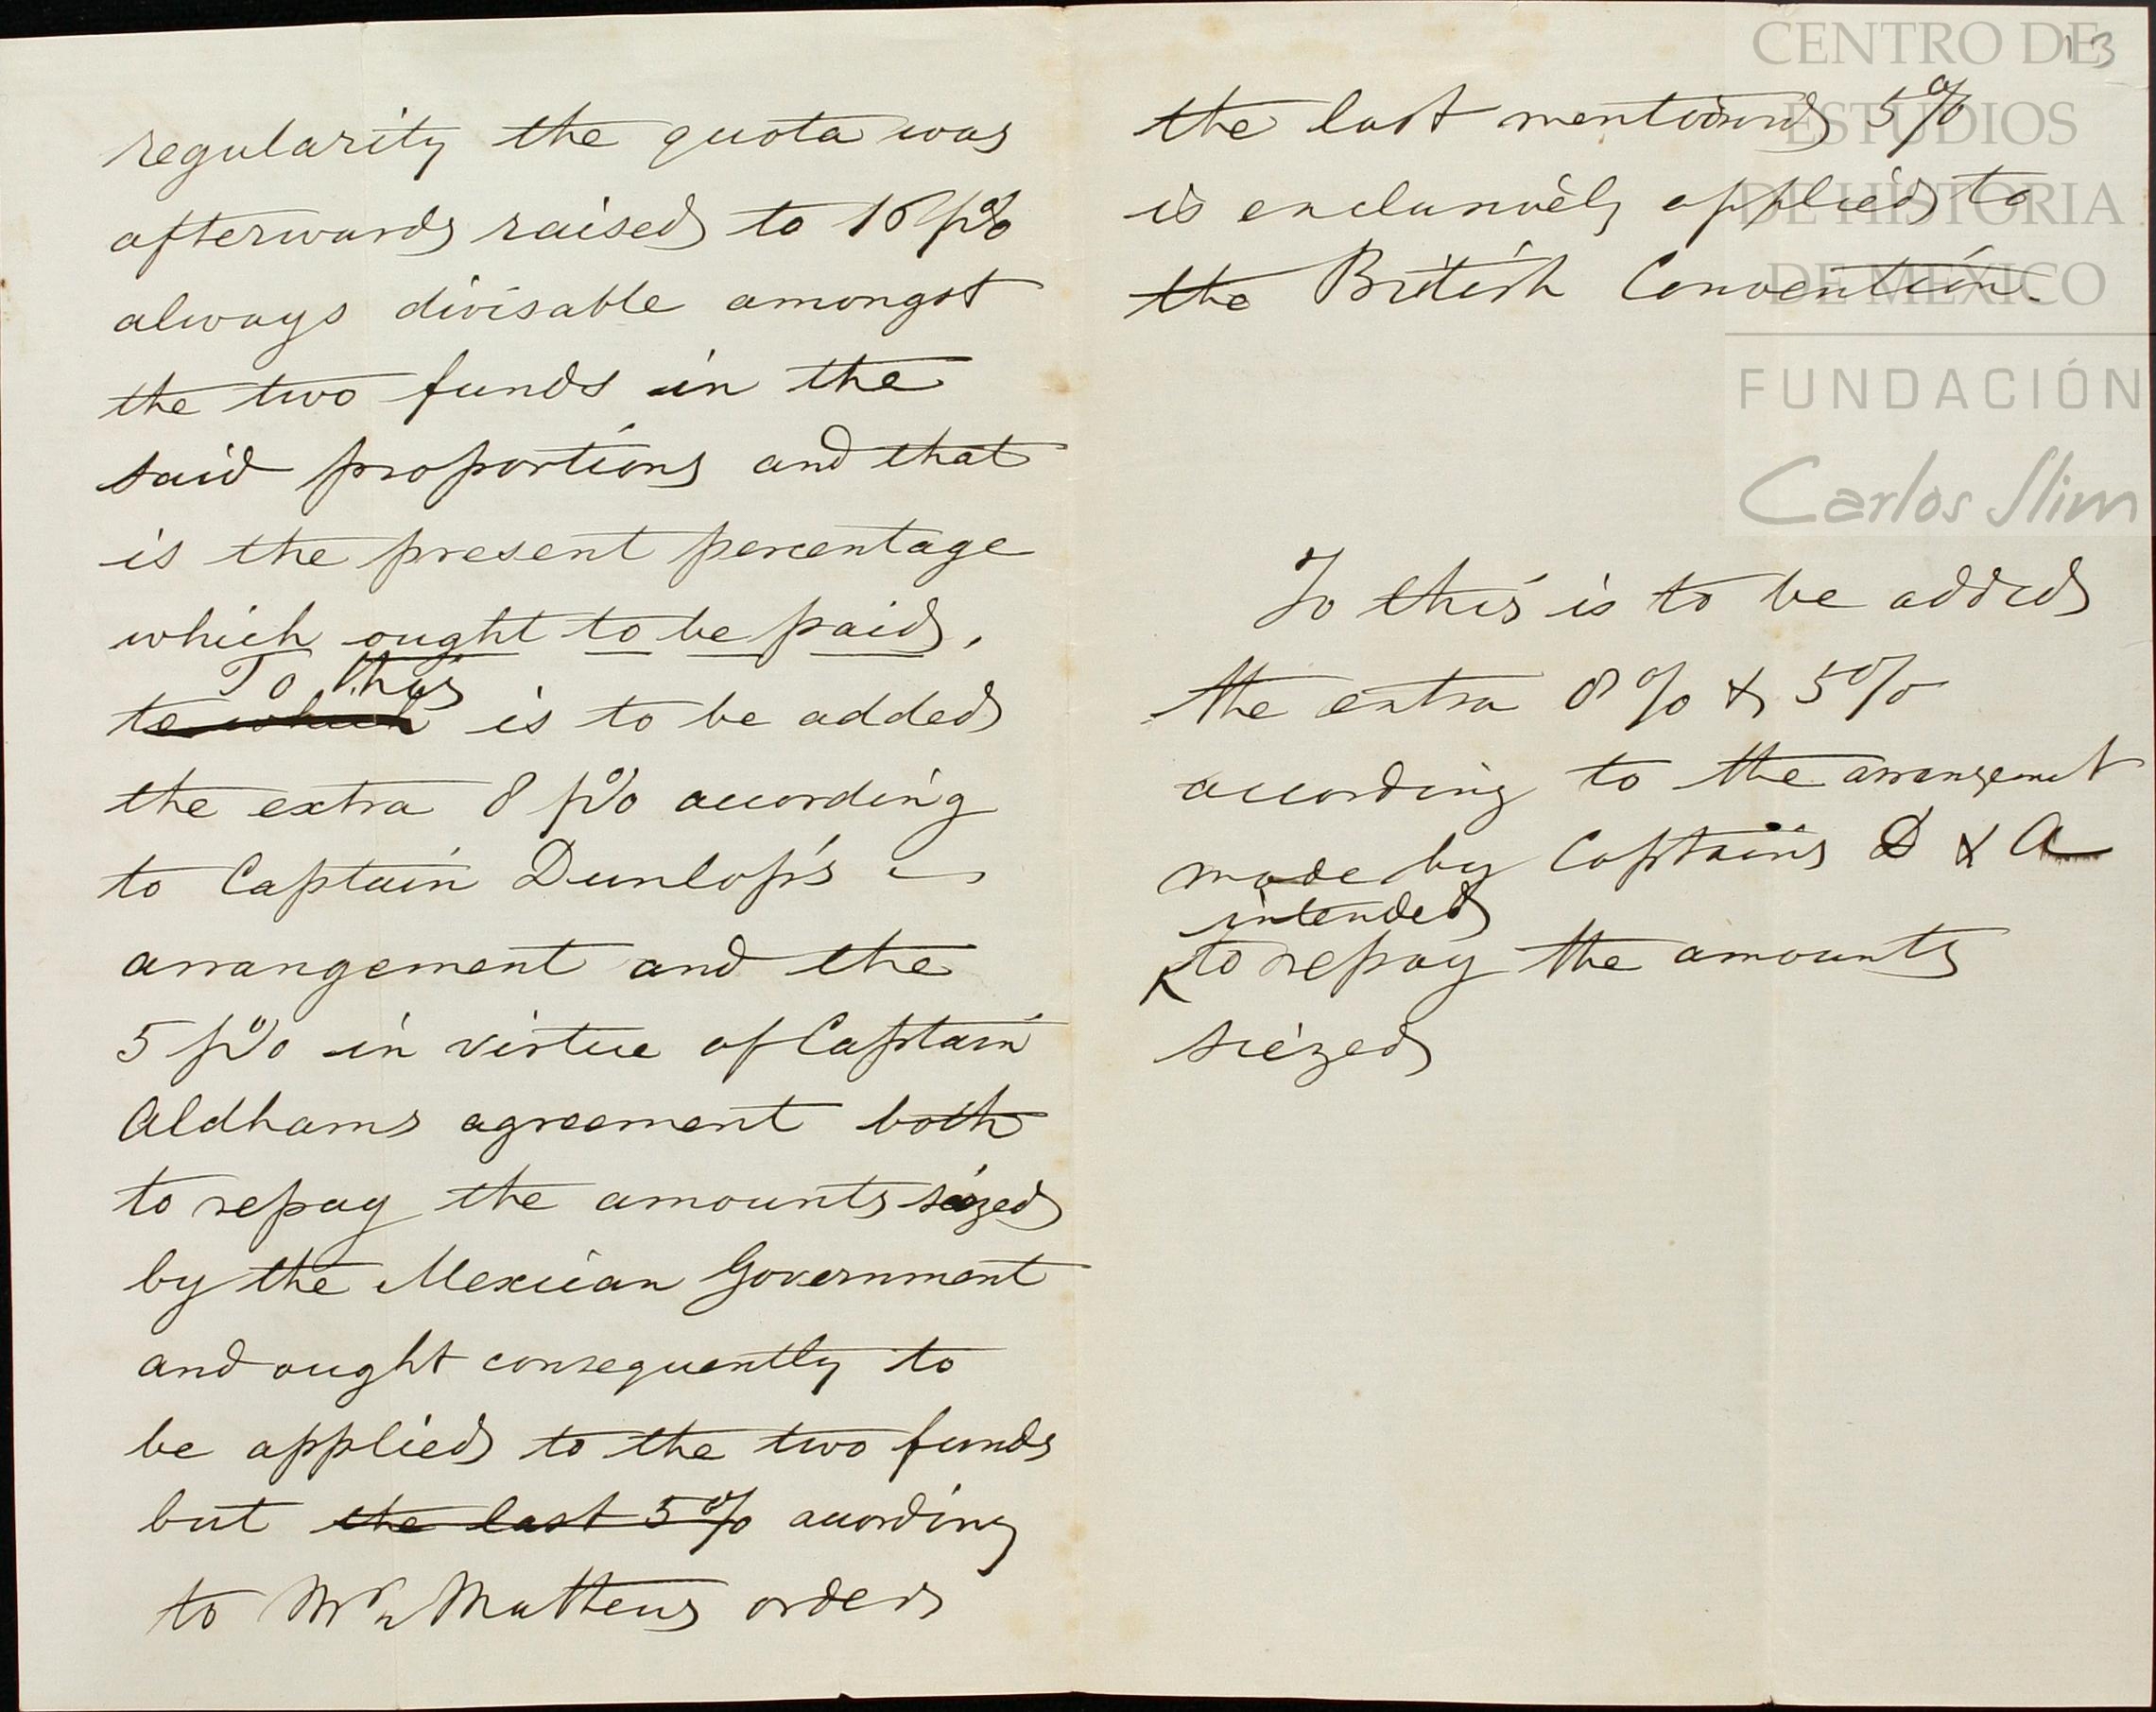 regularity the quota was
afterwards raised to 16 p%
always divisable amongst
the two funds in the
said proportions and that
is the present percentage
which ought to be paid,
To this
to which is to be added
the extra 8 p% according
to Captain Dunlop's
arrangement and the
5 p% in virtue of Captain
Aldhams agreement both
to repay the amounts seized
by the Mexican Government
and ought consequently to
be applied to the two funds
but the last 5% according
to Mr Mathews orders
13
the last mentioned 5%
is exclusively applied to
the British Convention.
To this is to be added
the extra 8% & 5%
according to the arrangement
made by Captains D & A
intended
to repay the amounts
siezed
CENTRO DE
ESTUDIOS
DE HISTORIA
DE MÉXICO
FUNDACIÓN
Carlos Slim